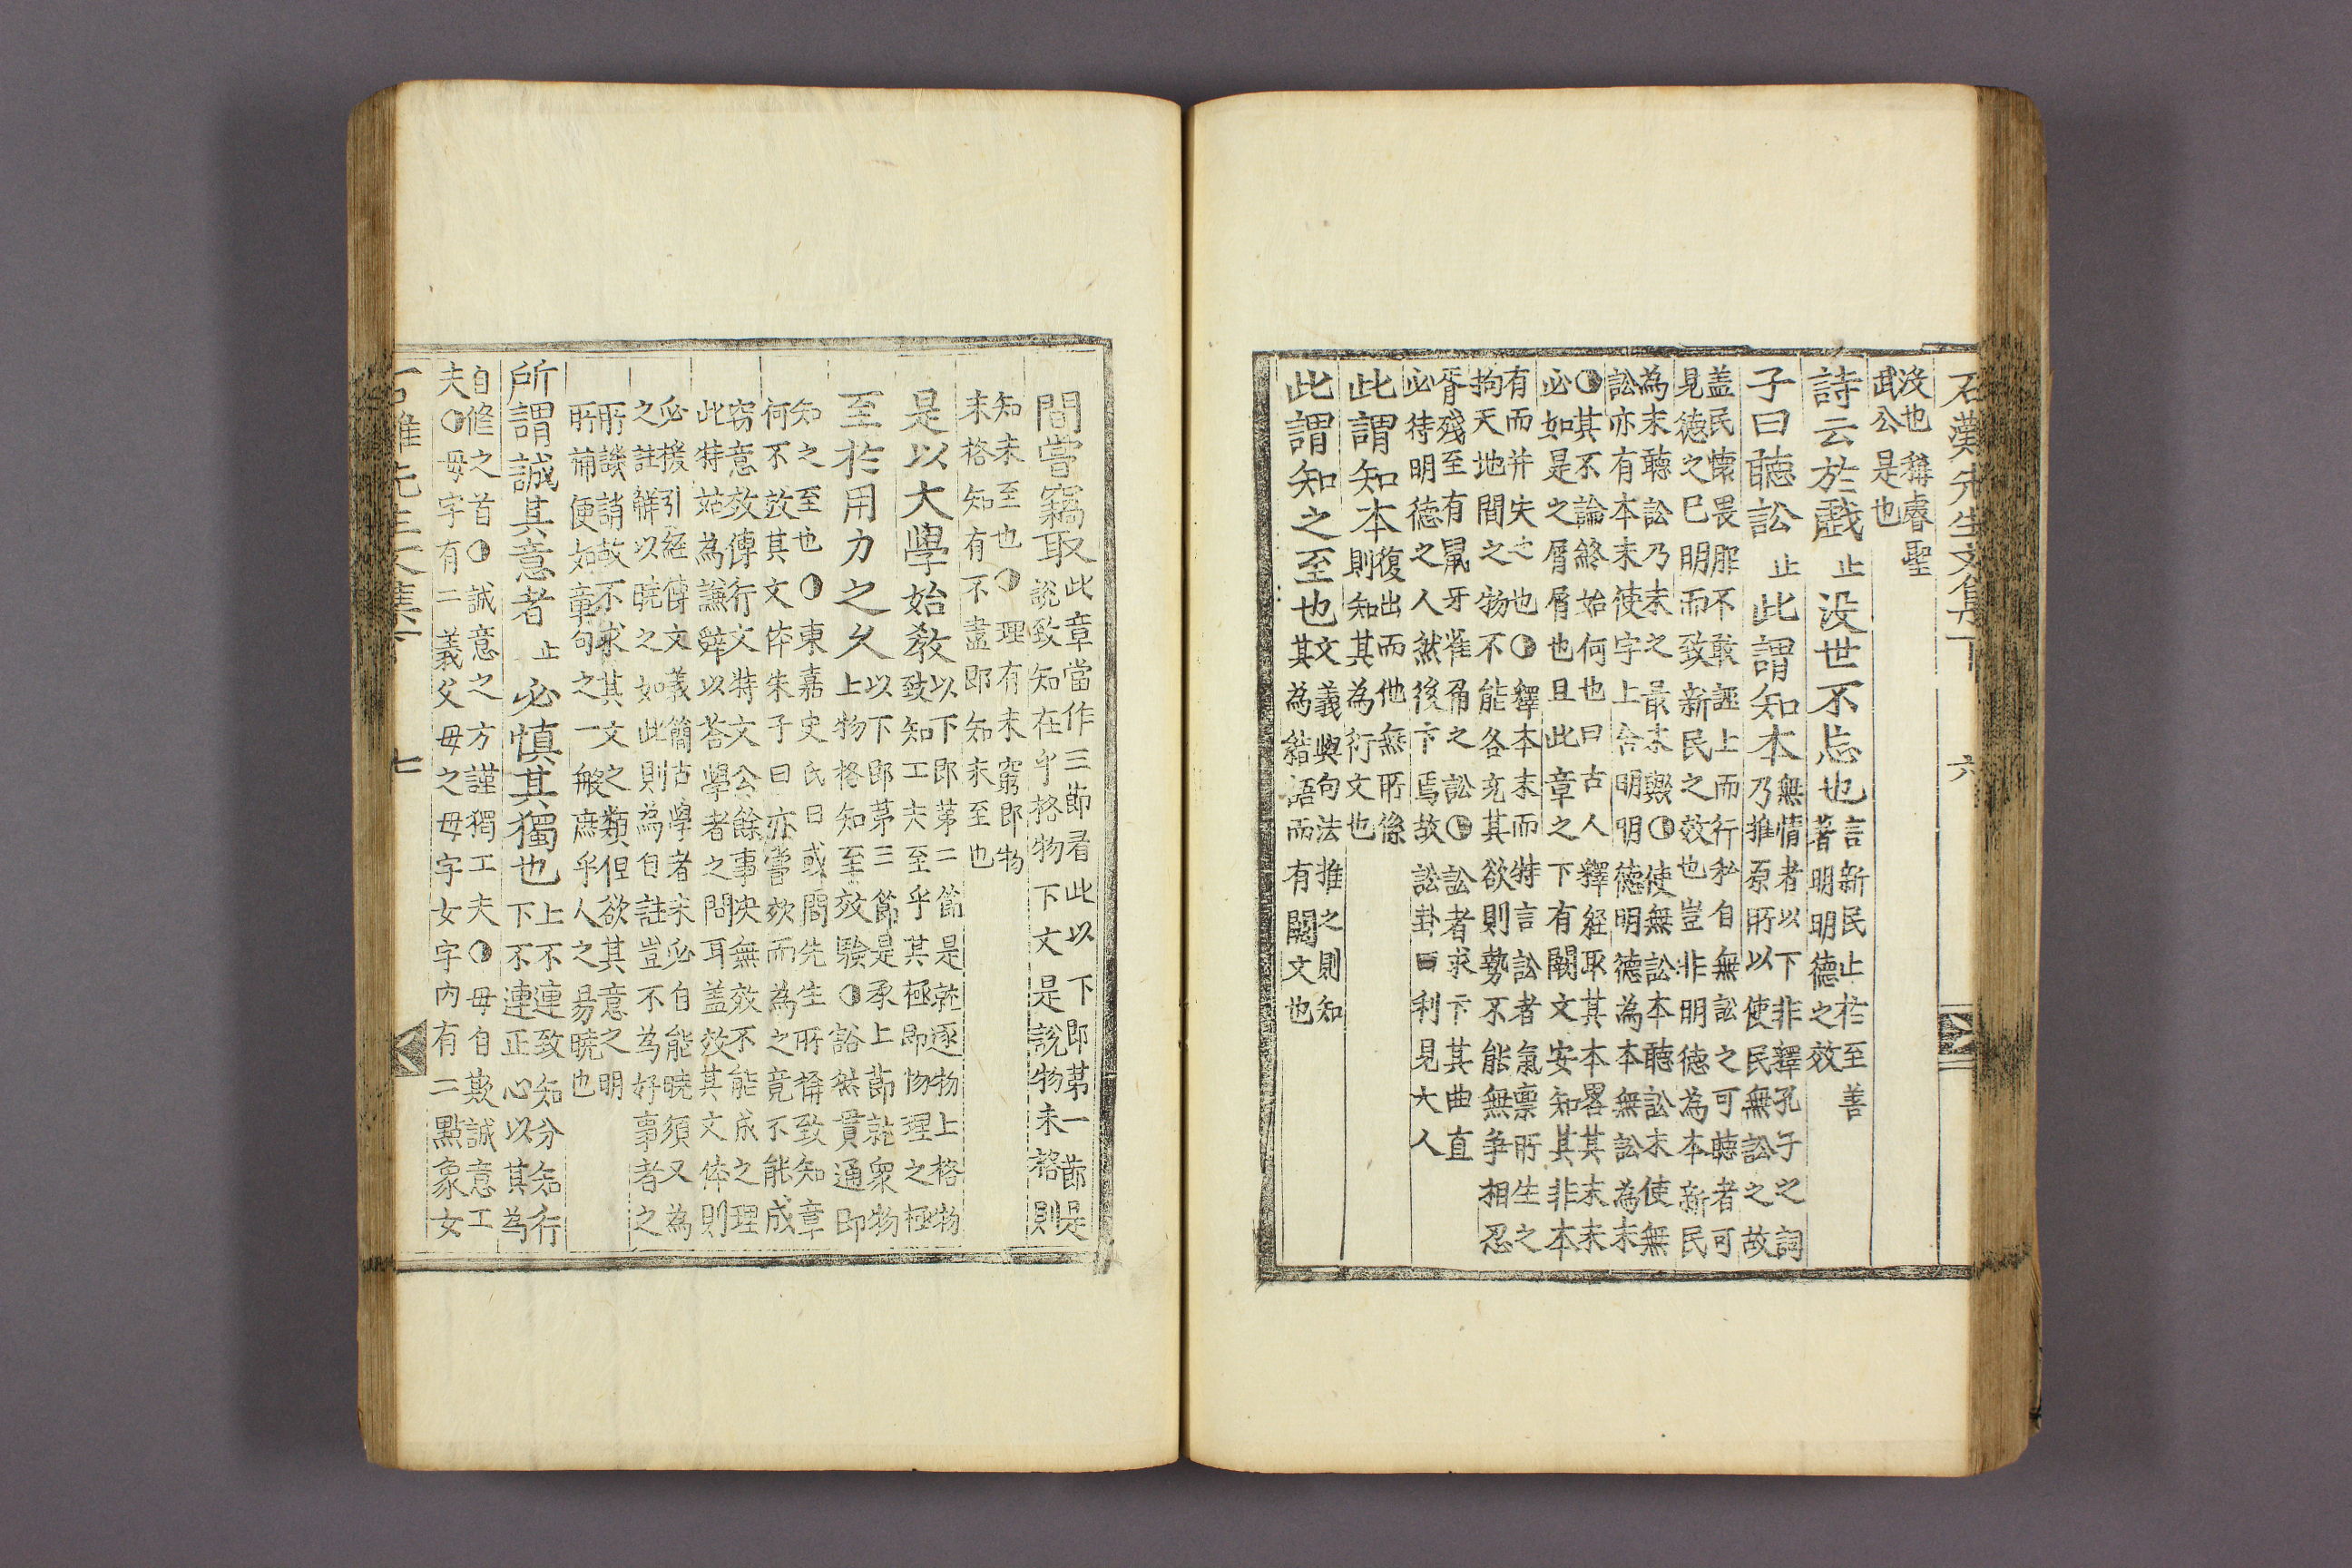 石灘先生文集下 六
没也稱睿聖
武公是也
詩云於戲止没世不忘也言新民止於至善
著明明德之效
子曰聽訟止此謂知本無情者以下非釋孔子之詞
乃推原所以使民無訟之故
盖民懷畏服不敢誣上而行私自無訟之可聽者可
見德之已明而致新民之效也豈非明德為本新民
為末聽訟乃末之最末歟◑使無訟本聽訟末使無
訟亦有本末使字上含明明德明德為本無訟為末
◑其不論終始何也曰古人釋經取其本畧其末末
必如是之屑屑也且此章之下有闕文安知其非本
有而并失之也◑釋本末而特言訟者氣禀所生之
拘天地間之物不能各充其欲則勢不能無爭相忍
胥殘至有鼠牙雀角之訟◑訟者求卞其曲直
必待明德之人然後卞焉故訟卦曰利見大人
此謂知本復出而他無所係
則知其為衍文也
此謂知之至也文義與句法推之則知
其為結語而有闕文也
間嘗竊取此章當作三節看此以下即第一節是
說致知在乎格物下文是說物未格則
知未至也◑理有未窮即物
未格知有不盡即知未至也
是以大學始敎以下即第二節是就逐物上格物
致知工夫至乎其極即物理之極
至於用力之久以下即第三節是承上節就衆物
上物格知至效驗◑豁然貫通即
知之至也◑東嘉史氏曰或問先生所補致知章
何不效其文体朱子曰亦嘗效而為之竟不能成
窃意效傳行文特文公餘事決無效不能成之理
此特姑為謙辭以荅學者之問耳盖效其文体則
必援引經傳文義簡古學者未必自能曉須又為
之註觧以曉之如此則為自註豈不為好事者之
所譏誚故不求其文之類但欲其意之明
所補便如章句之一般庶乎人之昜曉也
所謂誠其意者止必慎其獨也上不連致知分知行
下不連正心以其為
自修之首◑誠意之方謹獨工夫◑毋自欺誠意工
夫◑毋字有二義父母之母字女字內有二點象女
石灘先生文集下 七